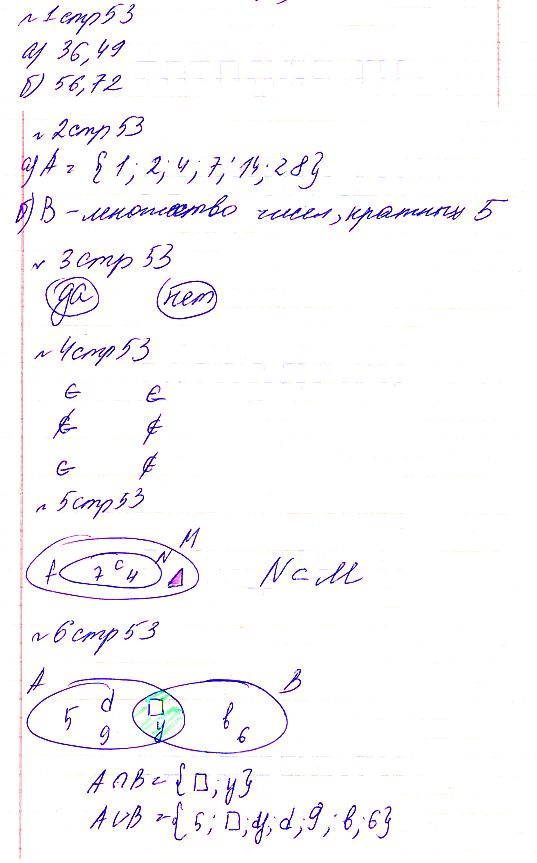 № 1 стр 53
а) 36, 49
б) 56, 72
№ 2 стр 53
а) А = {1; 2; 4; 7; 14; 28}
б) В – множество чисел, кратных 5
№ 3 стр 53
да нет
№ 4 стр 53
∈ ∈
∉ ∉
∈ ∉
№ 5 стр 53
M
N
f 7 c 4
N ⊂ M
№ 6 стр 53
А В
5 d 9 □ y в 6
А∩В = {□; y}
А∪В = {5; □; y; d; 9; в; 6}